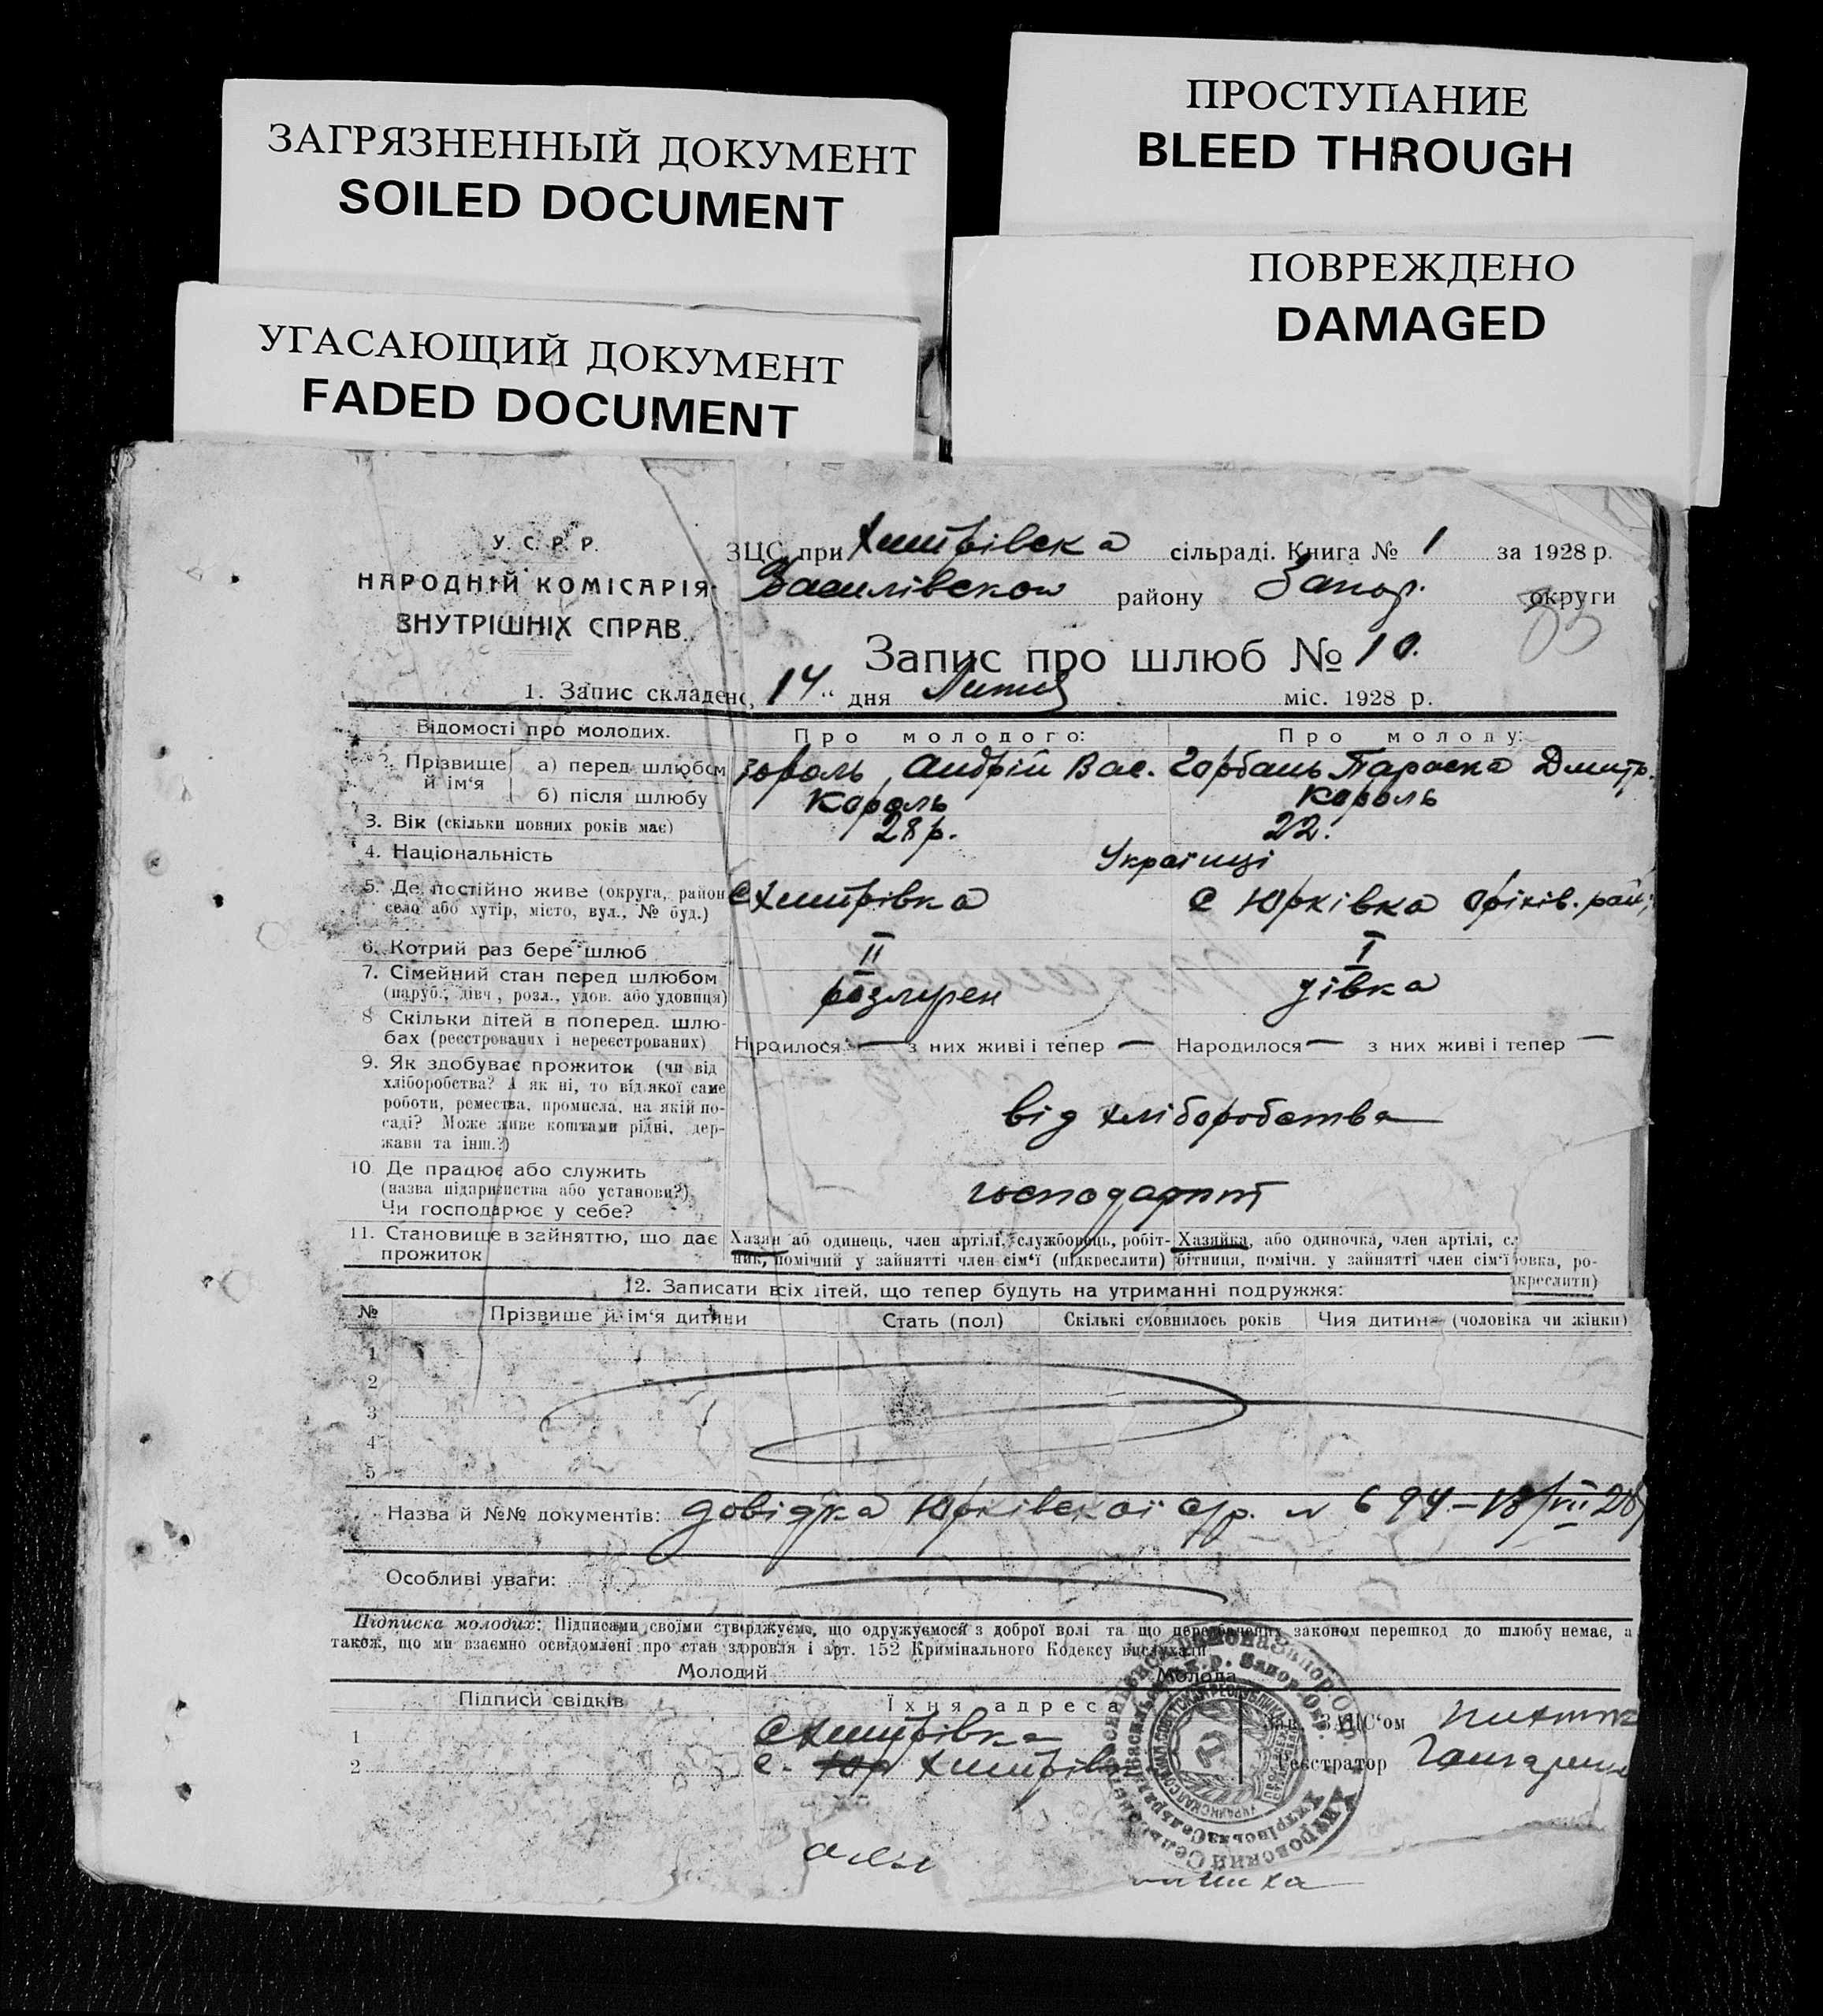 ЗАГРЯЗНЕННЫЙ ДОКУМЕНТ
SOILED DOCUMENT
ПРОСТУПАНИЕ
BLEED THROUGH
УГАСАЮЩИЙ ДОКУМЕНТ
FADED DOCUMENT
ПОВРЕЖДЕНО
DAMAGED
У. С. Р. Р.
НАРОДНІЙ КОМІСАРІЯ
ВНУТРІШНІХ СПРАВ.
ЗЦС при Хитрівска сільраді. Книга № 1 за 1928 р.
Василівскою району Запор. округи
83
Запис про шлюб № 10.
1. Запис складено, 14 " дня міс. 1928 р.
Відомості про молодих. Про молодого: Про молоду:
2. Прізвище й ім'я а) перед шлюбом Король, Андрій Вас. Горбань Параска Дмитр.
б) після шлюбу Король Король
3. Вік (скільки повних років має) 28 р. 22.
4. Національність Українці
5. Де постійно живе (округа, район с Хитрівка с Юрківка Оріхів. рай
село або хутір, місто, вул., № буд.)
6. Котрий раз бере шлюб II I
7. Сімейний стан перед шлюбом
(паруб., дівч., розл., удов. або удовиця) дівка
8 Скільки дітей в поперед. шлю-
бах (реєстрованих і нереєстрованих) Народилося — з них живі і тепер — Народилося — з них живі і тепер —
9. Як здобуває прожиток (чи від
хліборобства? А як ні, то від якої саме
роботи, ремества, промисла, на якій по-
саді? Може живе коштами рідні, дер-
жави та інш.?)
від хліборобства
10. Де працює або служить
(назва підприємства або установи?)
Чи господарює у себе?
11. Становище в зайняттю, що дає прожиток
Хазян аб одинець, член артілі, службовець, робіт-
ник, помічний у зайнятті член сім'ї (підкреслити)
Хазяйка, або одиночка, член артілі, с
бітниця, помічн. у зайнятті член сім'ї
овка, ро-
креслити)
12. Записати всіх дітей, що тепер будуть на утриманні подружжя:
№ Прізвище й ім'я дитини Стать (пол) Скількі сповнилось років Чия дитина (чоловіка чи жінки)
1
2
3
4
5
Назва й №№ документів: довідка Юрківскої с/р. № 694 – 18/VII 28
Особливі уваги:
Підписка молодих: Підписами своїми стверджуємо, що одружуємося з доброї волі та що передбачених законом перешкод до шлюбу немає, а
також, що ми взаємно освідомлені про стан здоровля і арт. 152 Кримінального Кодексу вислухали
Молодий Молода
Підписи свідків Їхня адреса Зав. ЗАЦС'ом
1 с Хитрівка
2 с. Хитрівка Реєстратор